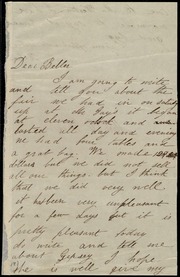 Dear Belle,
I am going to write
and tell you about the
fair we had in our
up at the Gay's it began
at eleven oclock and
lasted all day and evening
we had four tables and
a grab bag. We made
dollars but we did not sell
all our things. but I think
that we did very well
it has been very unpleasant
for a few days but it is
pretty pleasant today
do write and tell me
about I hope
she is well give my